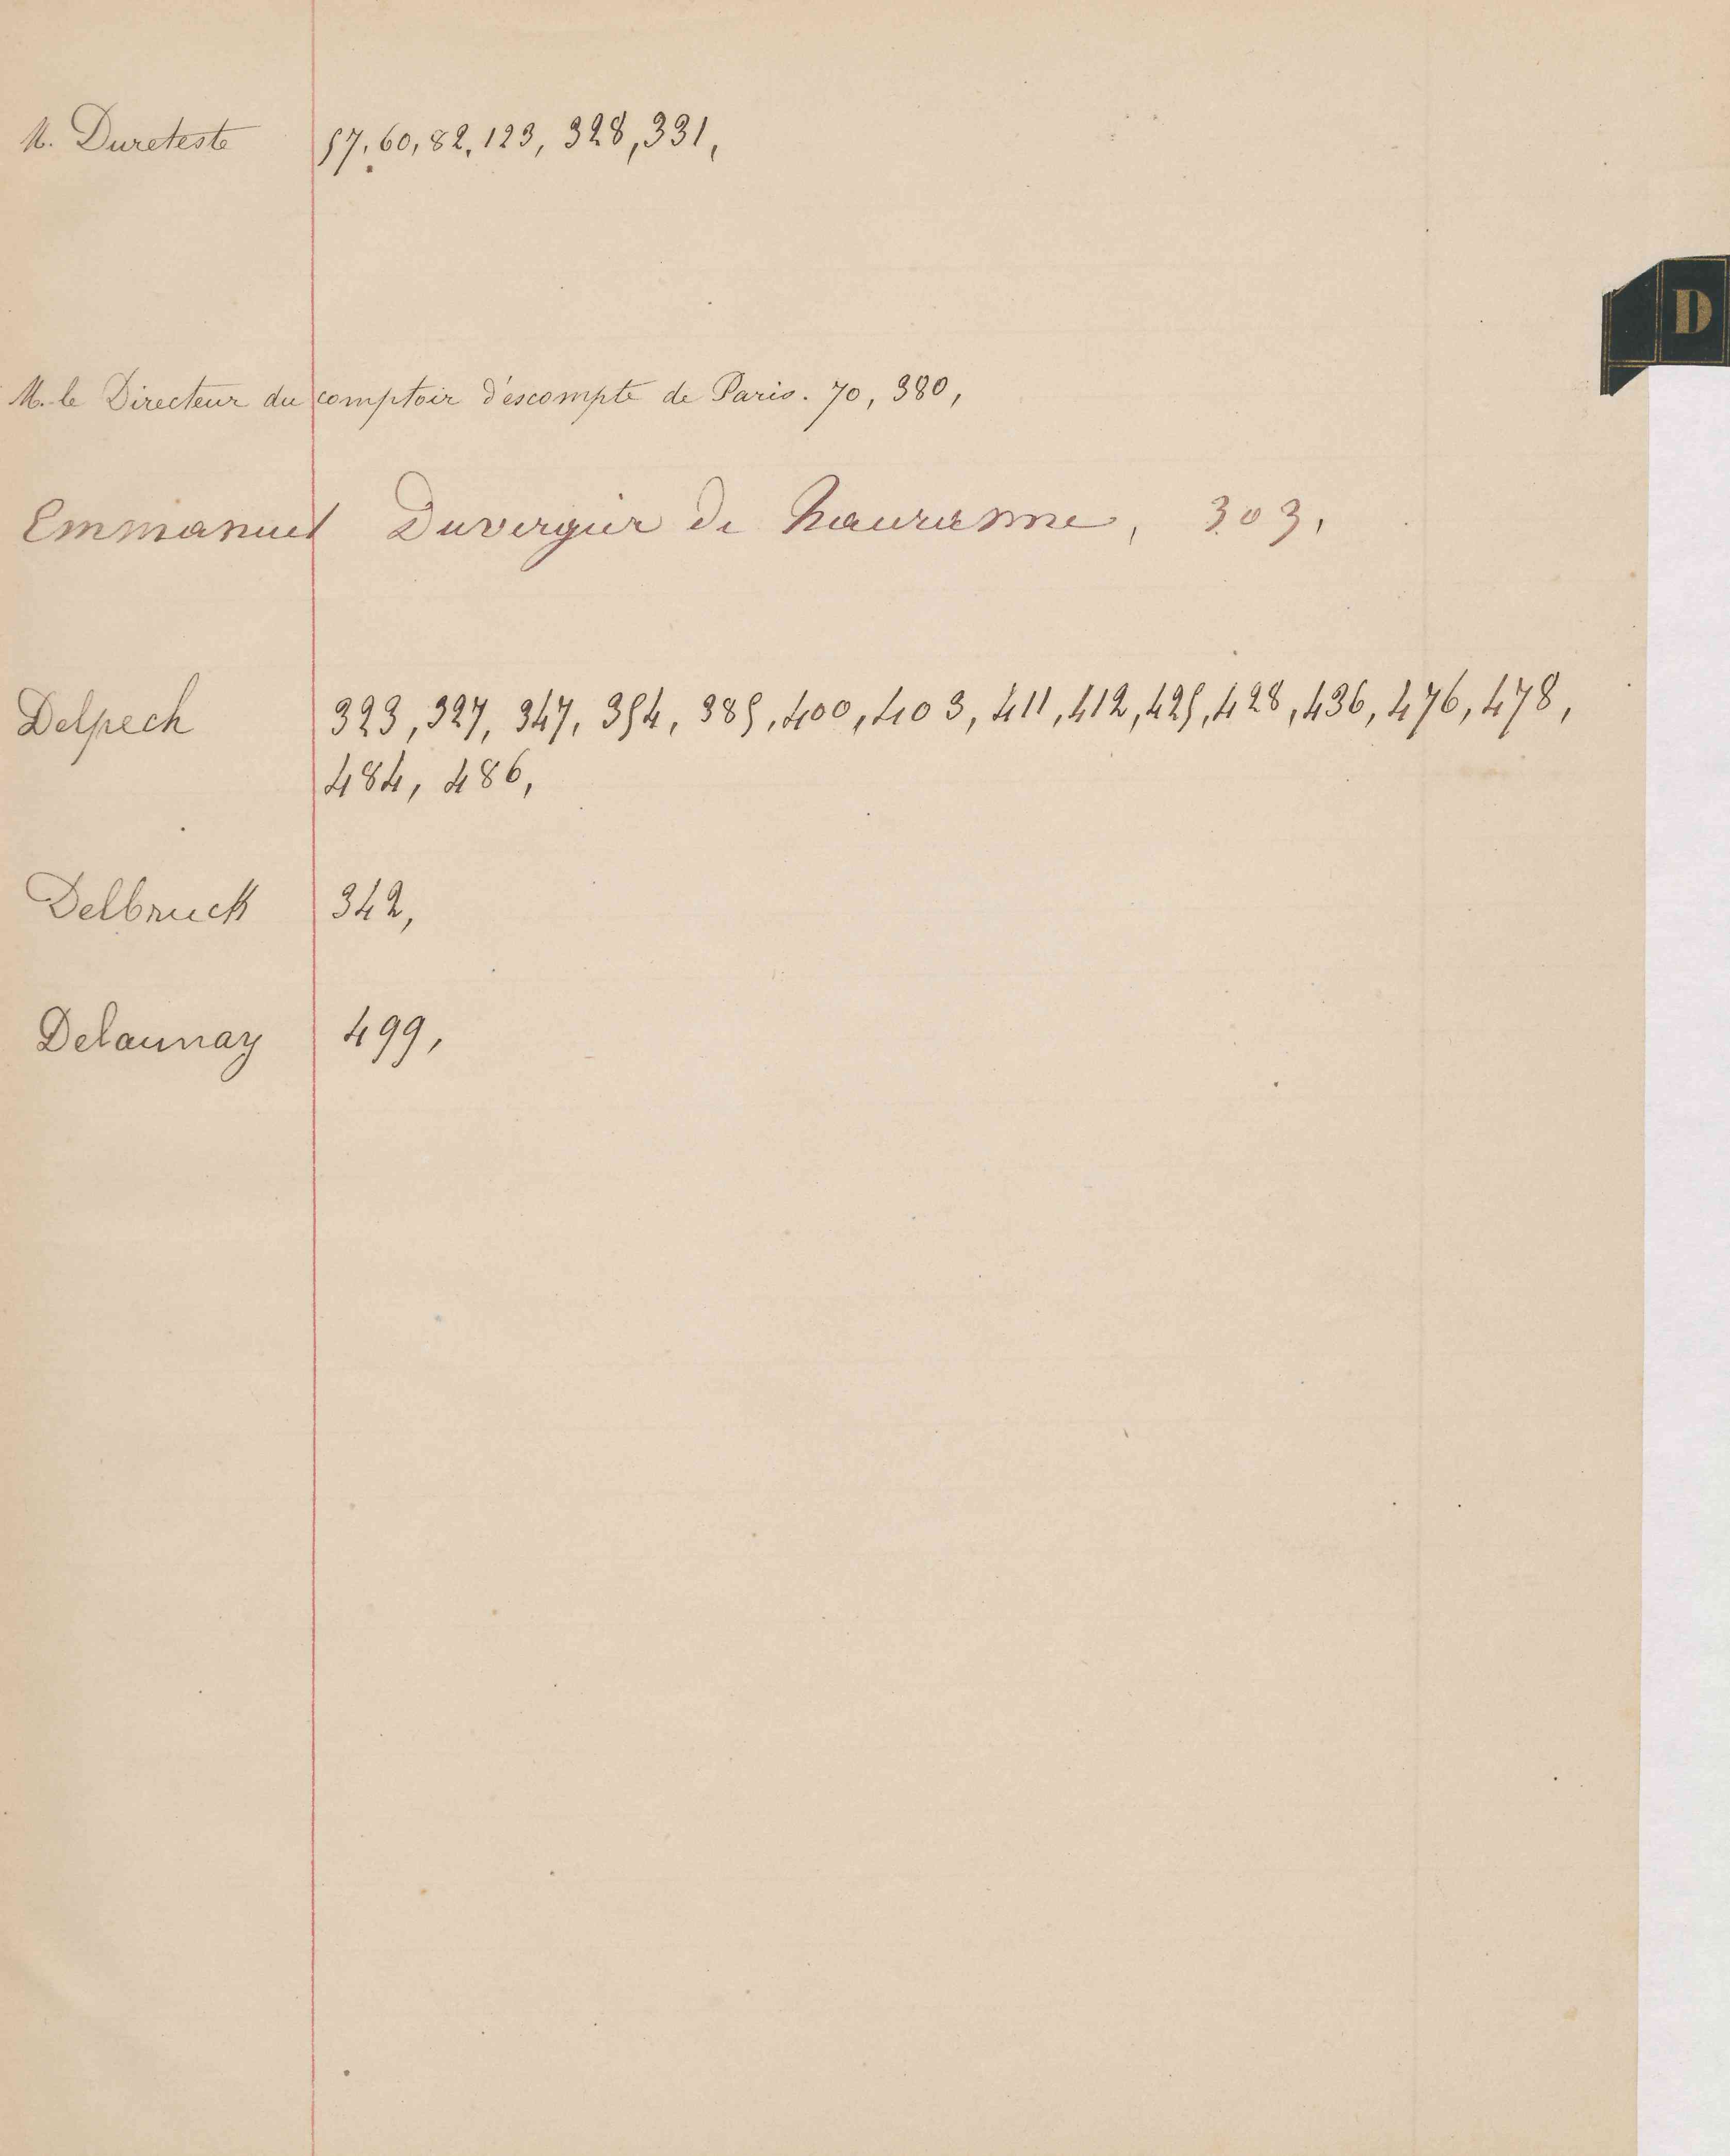 M. Dureteste 57, 60, 82, 123, 328, 331,
D
M. le Directeur du comptoir d'escompte de Paris. 70, 380,
Emmanuel Duvergier de Hauranne, 303,
Delpech 323, 327, 347, 354, 385, 400, 403, 411, 412, 425, 428, 436, 476, 478,
484, 486,
Delbruck 342,
Delaunay 499,